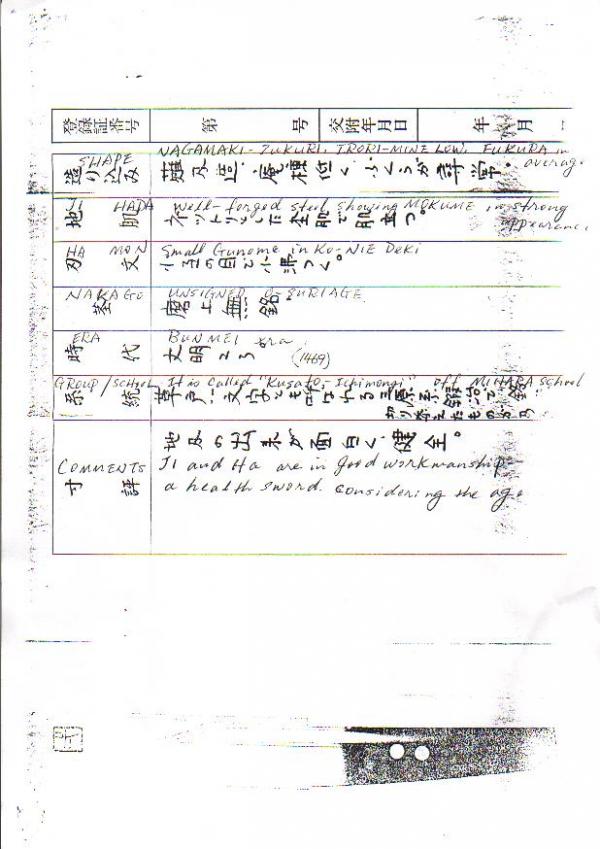 登録証番号 第 号 交附年月日 年 月
SHAPE NAGAMAKI-ZUKURI, IRORI-MINE LOW, FUKURA in average
造り込み 薙刀造、庵棟低く、ふくらが尋常。
JI HADA Well-forged steel showing MOKUME in strong appearance
地肌 た全肌で肌立つ。
HA MON Small Gunome in KO-NIE DEKI
刃文 小互の目で小沸つく。
NAKAGO UNSIGNED O-SURIAGE
茎 磨上無銘
ERA BUNMEI era
時代 文明ころ (1469)
GROUP/School It is called "Kusato, Ichimonji" off MIHARA School
系統 草戸一文字とも呼ばれる三原系鍛冶で、銘
切り添えたものがあり
地刃の出来が面白く、健全。
COMMENTS JI and HA are in good workmanship-
寸評 a health sword. Considering the age